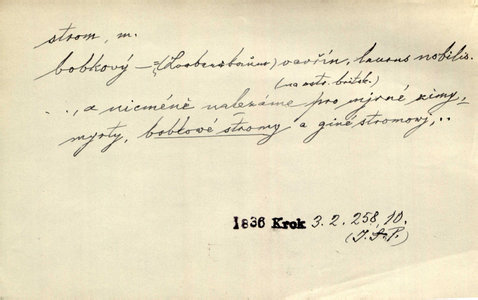 strom, m.
bobkový – (Lorbeerbaum) vavřín, laurus nobilis.
(na ostr. britsk.)
..., a nicméně nalezáme pro mjrné zimy,
myrty, bobkové stromy a giné stromowj, ..
1836 Krok 3. 2. 258, 10.
(J. S. P.)